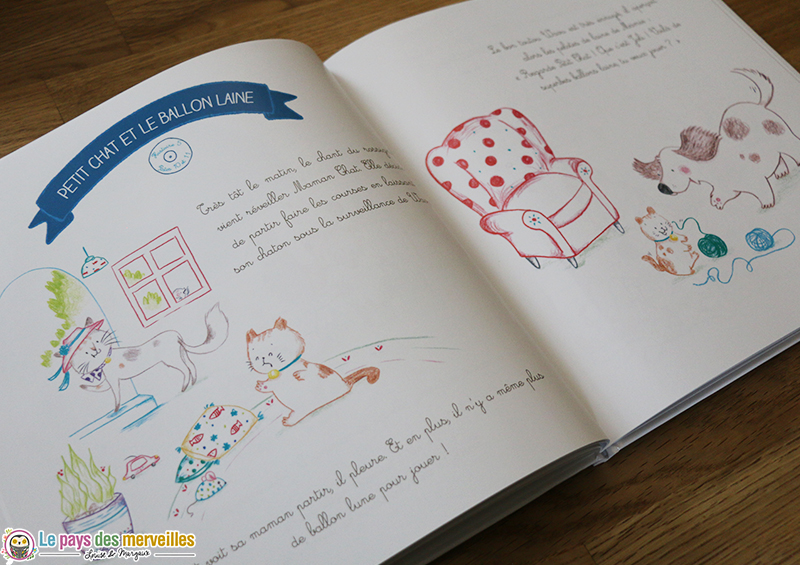 PETIT CHAT ET LE BALLON LAINE
Très tôt le matin, le chant du rouge
vient réveiller Maman Chat. Elle décide
de partir faire les courses en laissant
son chaton sous la surveillance de
voit sa maman partir, il pleure. Et en plus, il n'y a même plus
de ballon lune pour jouer !
Le bon toutou est très
dans les pelotes de laine de Maman :
« Regarde Petit Chat ! Voilà de
superbes ballons laine, tu veux jouer ? »
Le pays des merveilles
Louise & Margaux